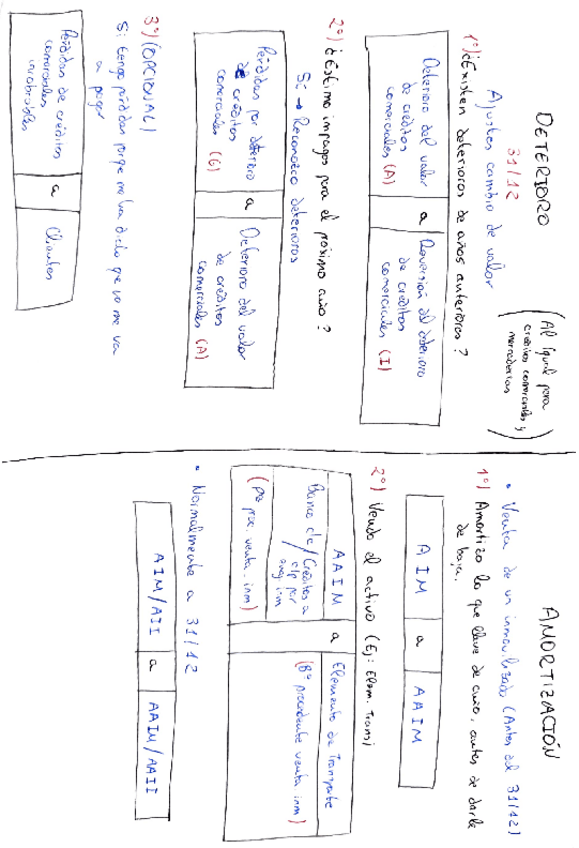 DETERIORO
31/12
(Al igual para
créditos comerciales y
mercaderías)
Ajustes cambio de valor
1º) ¿Existen deterioros de años anteriores?
Deterioro del valor
de créditos
comerciales (A)
a
Reversión del deterioro
de créditos
comerciales (I)
2º) ¿Estimo impagos para el próximo año?
Sí → Reconozco deterioros
Pérdidas por deterioro
de créditos
comerciales (G)
a
Deterioro del valor
de créditos
comerciales (A)
3º) (OPCIONAL)
Si tengo pérdidas porque me ha dicho que no me va
a pagar
Pérdidas de créditos
comerciales
incobrables
a
Clientes
AMORTIZACIÓN
• Venta de un inmovilizado (Antes del 31/12)
1º) Amortizo lo que lleve de año, antes de darle
de baja.
AIM
a
AAIM
2º) Vendo el activo (Ej: Elem. Trans)
AAIM
Banco c/c / Créditos a
c/p por
enaj. im
(Pª pr. venta. inm)
a
Elemento de Transporte
(Bº procedente venta inm)
• Normalmente a 31/12
AIM/AII
a
AAIM/AAII